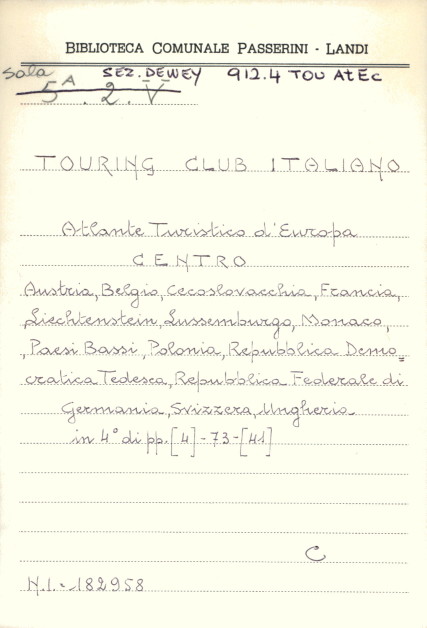 BIBLIOTECA COMUNALE PASSERINI - LANDI
Sala SEZ. DEWEY 912.4 TOU AtEc
5 A . 2. V
TOURING CLUB ITALIANO
Atlante Turistico d'Europa
CENTRO
Austria, Belgio, Cecoslovacchia, Francia,
Liechtenstein, Lussemburgo, Monaco,
, Paesi Bassi, Polonia, Repubblica Demo=
cratica Tedesca, Repubblica Federale di
Germania, Svizzera, Ungheria
in 4° di pp. [4] - 73 - [41]
C
N.I. - 182958